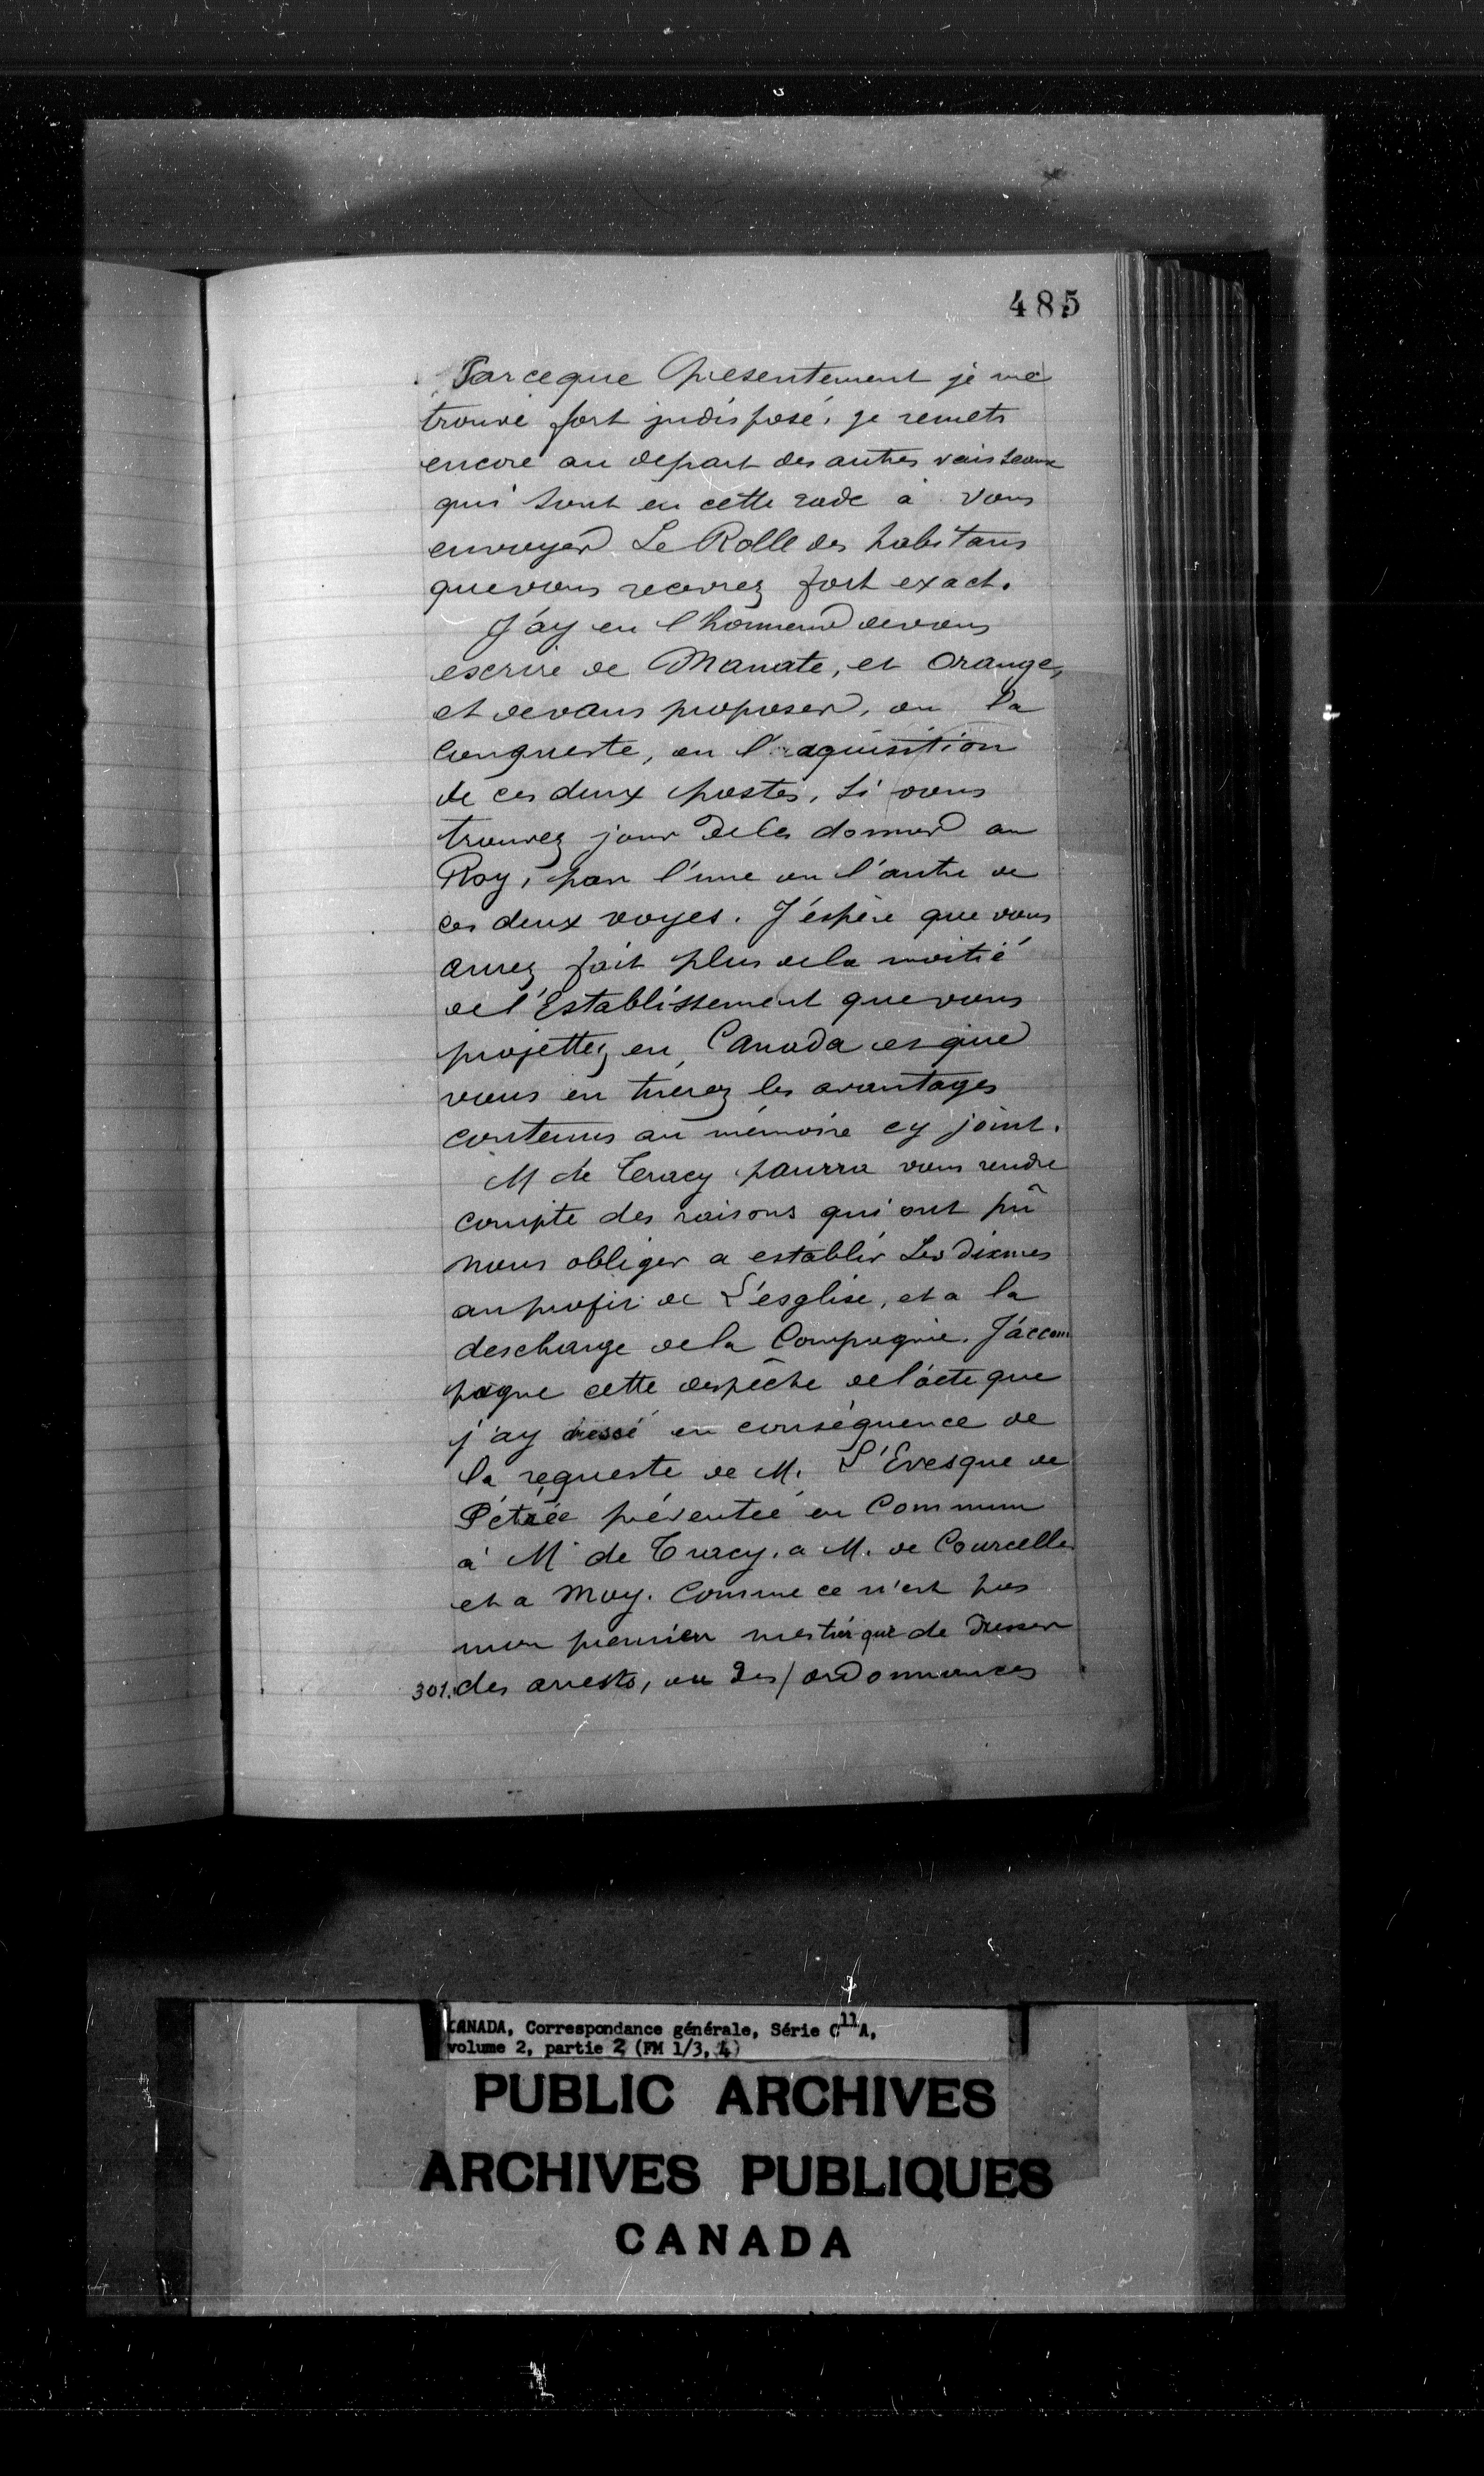 485
Parceque presentement je me
trouve fort indisposé, je remets
encore au depart des autres vaisseaux
qui sont en cette rade à vous
envoyer Le Rolle des habitans
que vous recevrez fort exact.
J'ay eu l'honneur de vous
escrire de Manate, et Orange,
et de vous proposer, ou la
Conqueste, ou l'aquisition
de ces deux postes, si vous
trouvez jour de les donner au
Roy, par l'une ou l'autre de
ces deux voyes. J'éspère que vous
aurez fait plus de la moitié
de l'Establissement que vous
projettez en Canada et que
vous en tirerez les avantages
contenus au mémoire cy joint.
M de Tracy pourra vous rendre
compte des raisons qui ont pû
nous obliger a establir Les dixmes
au profit de L'esglise, et a la
descharge de la Compagnie. J'accom
pagne cette despêche de l'acte que
j'ay dressé en conséquence de
la requeste de M. L'Evesque de
Pétrée présentée en Commun
à M. de Tracy, a M. de Courcelles
et a Moy. Comme ce n'est pas
mon premier mestier que de Dresser
301. des arrests, ou des / ordonnances
CANADA, Correspondance générale, Série C11A,
volume 2, partie 2 (FM 1/3, 4)
PUBLIC ARCHIVES
ARCHIVES PUBLIQUES
CANADA